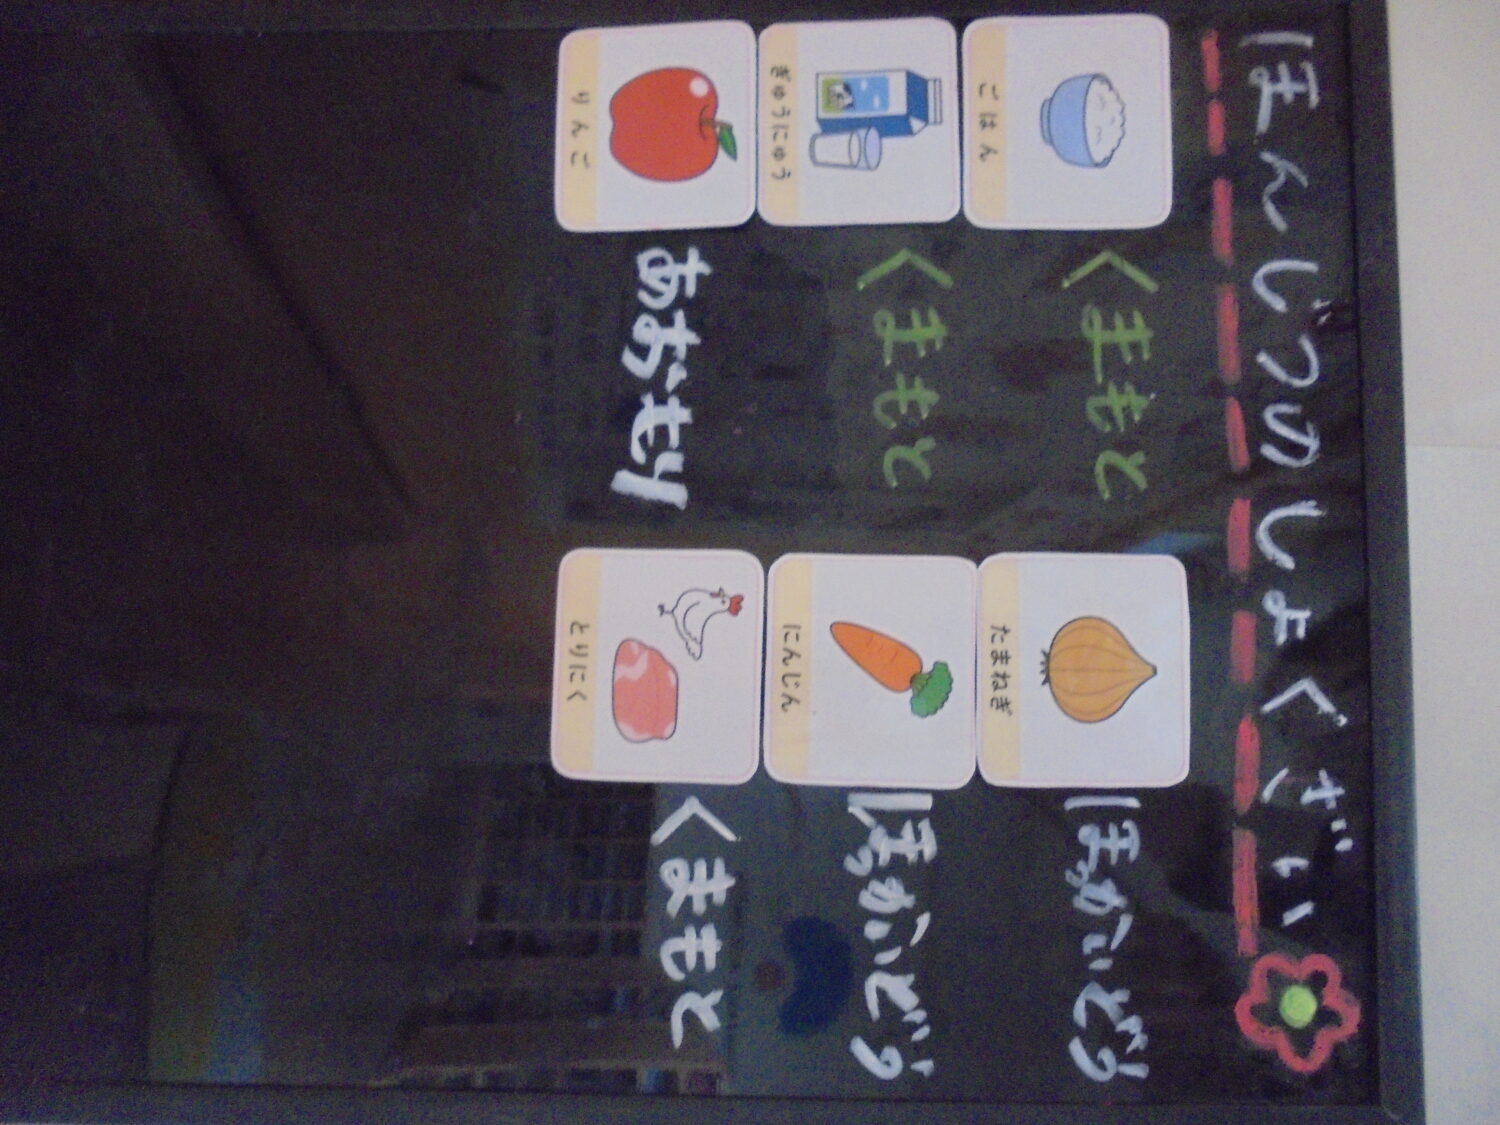 ほんじつのしょくざい
ごはん
くまもと
たまねぎ
ほっかいどう
ぎゅうにゅう
くまもと
にんじん
ほっかいどう
りんご
あおもり
とりにく
くまもと